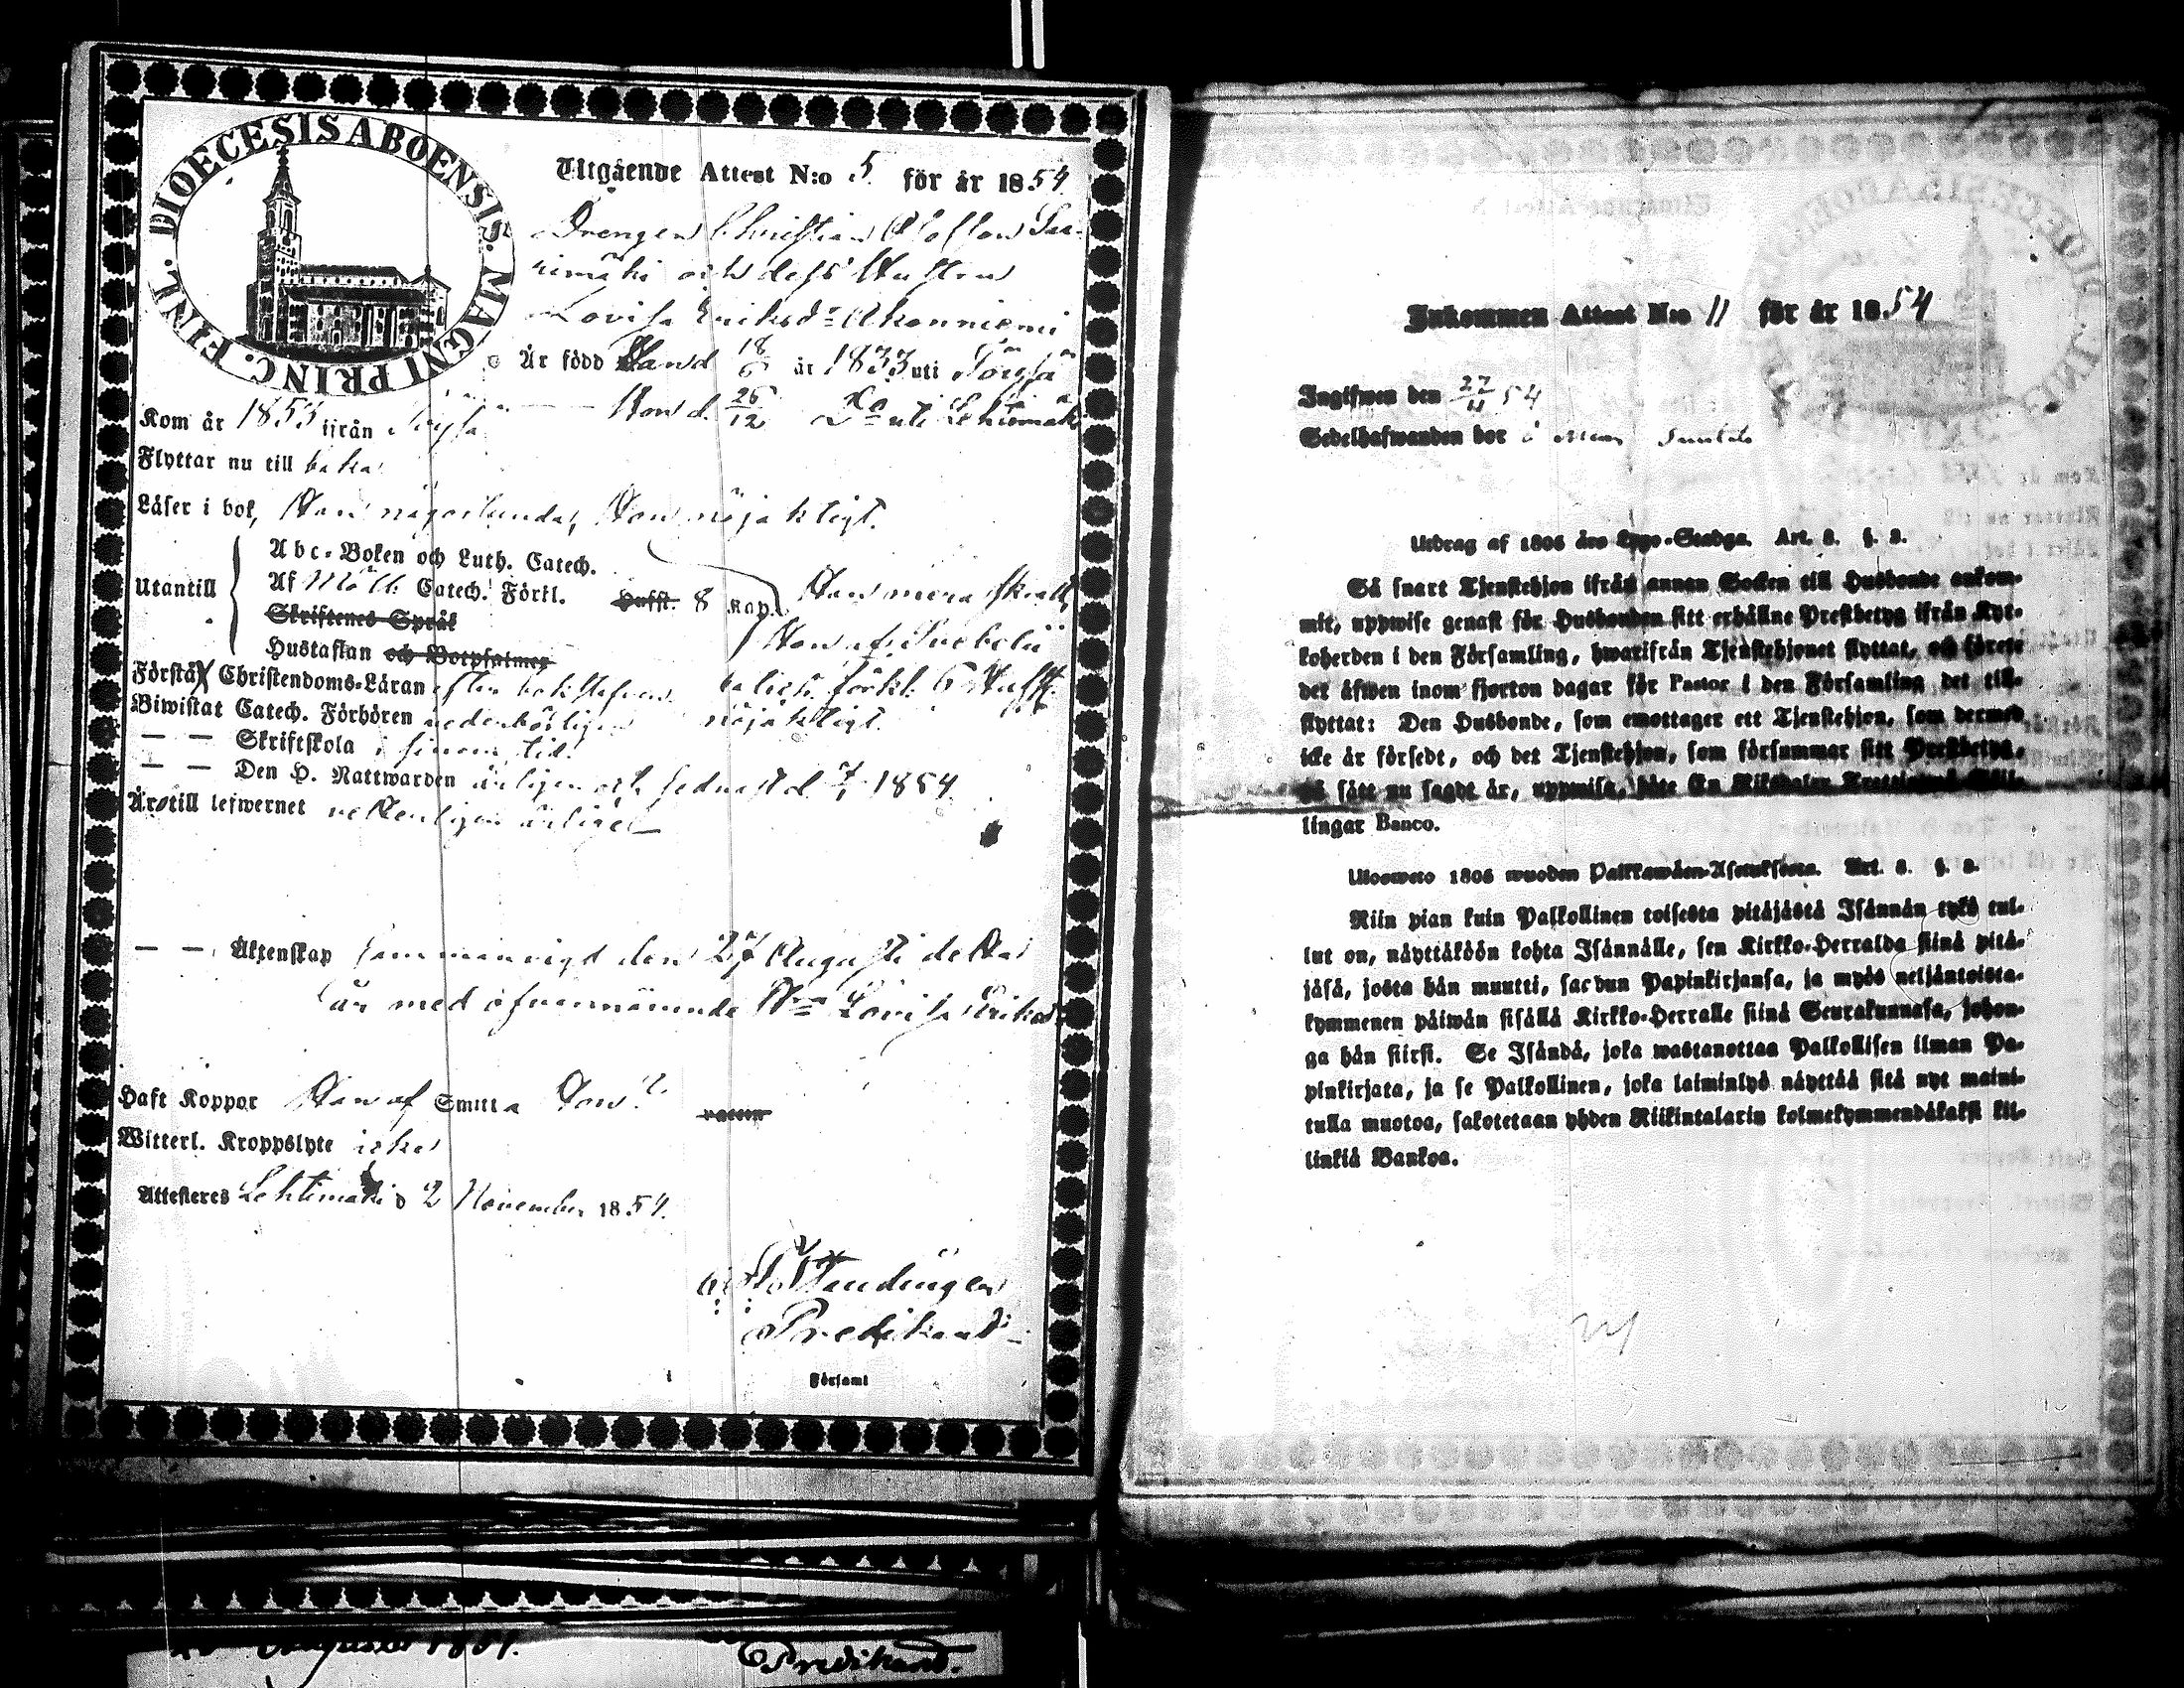 DIOECESIS ABOENSIS. MAGNI PRINC. FINL.
Utgående Attest N:o 5. för år 1854.
Drengen Christian Olofson Saa-
rimäki och dess Hustru
Lovisa Eriksdr Akonniemi
Är född Han d. 18/6 år 1833 uti Töysä
Hon d. 26/12 Do uti Lehtimäki
Kom år 1853 ifrån Töysä
Flyttar nu till baka
Läser i bok, Han någorlunda, Hon nöjaktigt.
Utantill
Abc-Boken och Luth. Catech.
Af Möll. Catech. Förkl. Hufst. 8 Kap. Han mera
Skriftenes Språk
Hustaflan och Botpsalmer Hon af Svebelii
Förstå Christendoms-Läran efter bokstafven catech. förkl. 6 Hufst.
Biwistat Catech. Förhören vederbörligen nöjaktigt.
— — Skriftskola i sinom tid.
— — Den H. Nattwarden årligen och sednast d. 1854
Är till lefwernet
— — Äktenskap sammanvigd den 27 Augusti detta
år med ofvannämnde Lovisa Eriksdr
Haft Koppor Han af Smitta Hon
vaccin
Witterl. Kroppslyte icke
Attesteres Lehtimäki d 2 November 1854.
Predikant
Församl
Augusti 1854.
Predikant.
Inkommen Attest N:o 11 för år 1854
Ingifwen den 27/11 54
Sedelhafwanden bor å
Utdrag af 1805 års Lego-Stadga. Art. 8. §. 2.
Så snart Tjenstehjon ifrån annan Socken till Husbonde ankom-
mit, uppwise genast för Husbonden sitt erhållne Prestbetyg ifrån Kyr-
koherden i den Församling, hwarifrån Tjenstehjonet flyttat, och förete
det äfwen inom fjorton dagar för Pastor i den Församling det till-
flyttat: Den Husbonde, som emottager ett Tjenstehjon, som dermed
icke är försedt, och det Tjenstehjon, som försummar sitt Prestbetyg,
på sätt nu sagdt är, uppwisa, böte En Riksdaler Trettiotwå Skil-
lingar Banco.
Ulosweto 1805 wuoden Palkkawäen-Asetuksesta. Art. 8. §. 2.
Niin pian kuin Palkollinen toisesta pitäjästä Isännän tykö tul-
lut on, näyttäköön kohta Isännälle, sen Kirkko-Herralda siinä pitä-
jäsä, josta hän muutti, saadun Papinkirjansa, ja myös neljäntoista-
kymmenen päiwän sisällä Kirkko-Herralle siinä Seurakunnasa, johon-
ga hän siirsi. Se Isändä, joka wastanottaa Palkollisen ilman Pa-
pinkirjata, ja se Palkollinen, joka laiminlyö näyttää sitä nyt maini-
tulla muotoa, sakotetaan yhden Riikintalarin kolmekymmendäkaksi kil-
linkiä Bankoa.